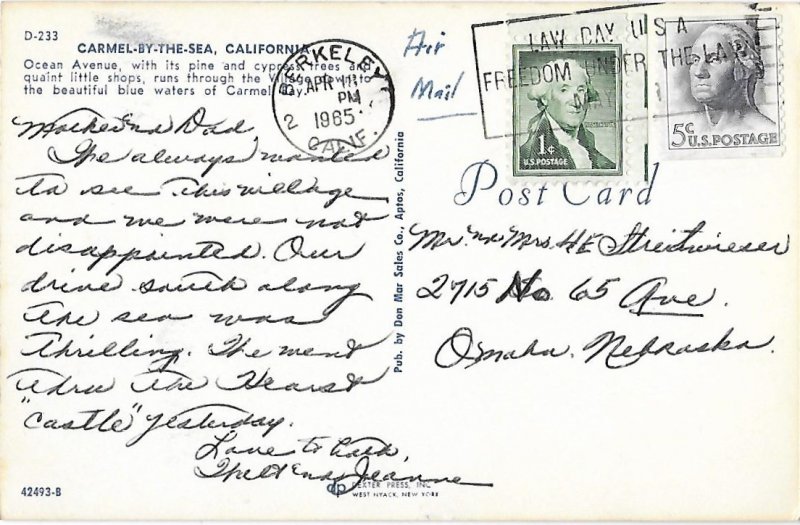 D-233
CARMEL-BY-THE-SEA, CALIFORNIA
Ocean Avenue, with its pine and cypress trees and
quaint little shops, runs through the Village down to
the beautiful blue waters of Carmel Bay.
BERKELEY
APR 11
PM
2
1965
CALIF.
Air
Mail
LAW DAY USA
FREEDOM UNDER THE LAW
MAY 1
1c
U.S. POSTAGE
5c
U.S. POSTAGE
Post Card
Mother and Dad,
We always wanted
to see this village
and we were not
disappointed. Our
drive south along
the sea was
thrilling. We went
thru the Hearst
"Castle" yesterday.
Love to both,
and Jeanne
Pub. by Don Mar Sales Co., Aptos, California
Mr. and Mrs. H E Streitwieser
2715 No. 65 Ave.
Omaha, Nebraska.
42493-B
dp
DEXTER PRESS, INC.
WEST NYACK, NEW YORK